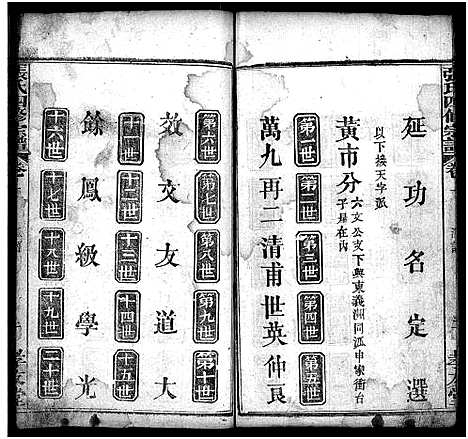 張氏四修宗譜
延功名定選
以下接天字派
黃市分
六文公支下興東義洲同
子是在內
第一世 第二世 第三世 第四世 第五世
萬九再二清甫世英仲良
第六世 第七世 第八世 第九世 第十世
效文友道大
十三世 十四世 十五世
餘鳳級學光
十六世 十七世 十八世 十九世 二十世